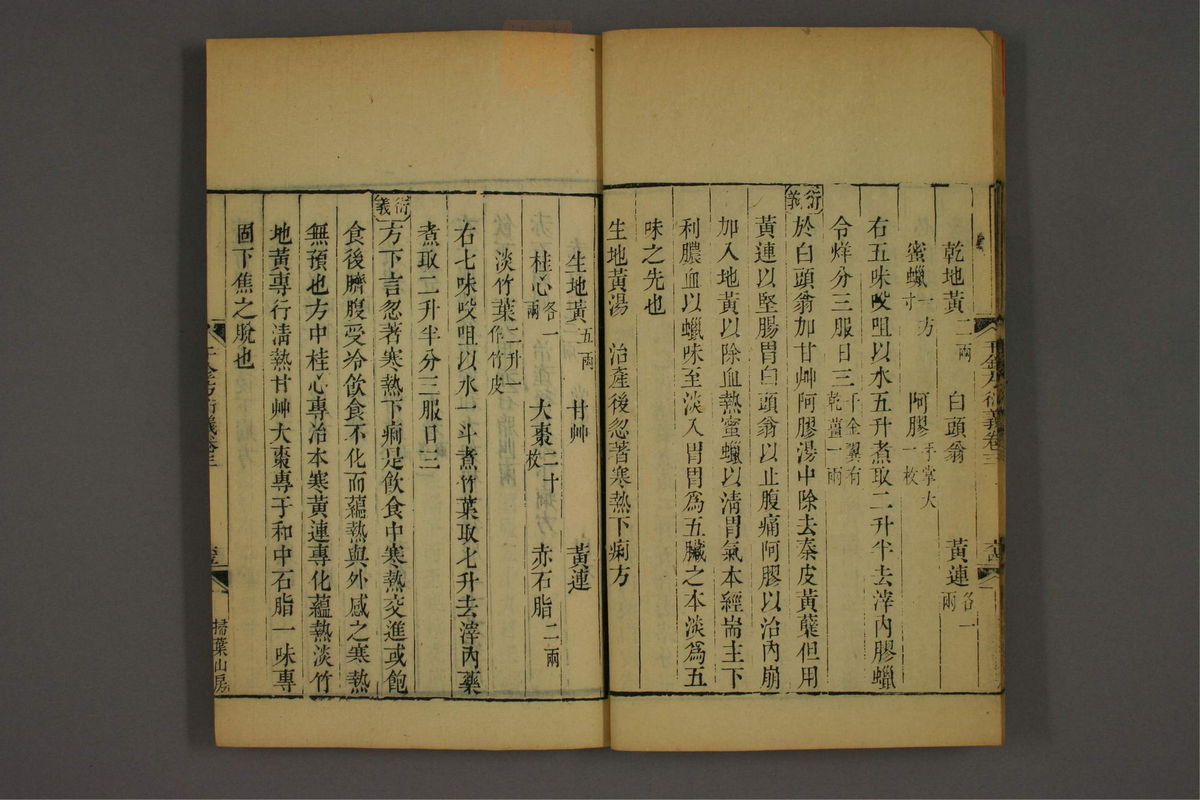 乾地黃二兩 白頭翁 黃連各一兩
蜜蠟一方寸 阿膠手掌大一枚
右五味㕮咀以水五升煮取二升半去滓內膠蠟
令烊分三服日三千金翼有乾薑一兩
衍義
於白頭翁加甘艸阿膠湯中除去秦皮黃蘗但用
黃連以堅腸胃白頭翁以止腹痛阿膠以治內崩
加入地黃以除血熱蜜蠟以清胃氣本經耑主下
利膿血以蠟味至淡入胃胃爲五臟之本淡爲五
味之先也
生地黃湯 治產後忽著寒熱下痢方
生地黃五兩 甘艸 黃連
桂心各一兩 大棗二十枚 赤石脂二兩
淡竹葉二升一作竹皮
右七味㕮咀以水一斗煮竹葉取七升去滓內藥
煮取二升半分三服日三
衍義
方下言忽著寒熱下痢是飲食中寒熱交進或飽
食後臍腹受冷飲食不化而蘊熱與外感之寒熱
無預也方中桂心專治本寒黃連專化蘊熱淡竹
地黃專行清熱甘艸大棗專于和中石脂一味專
固下焦之脫也
千金方衍義卷三
掃葉山房